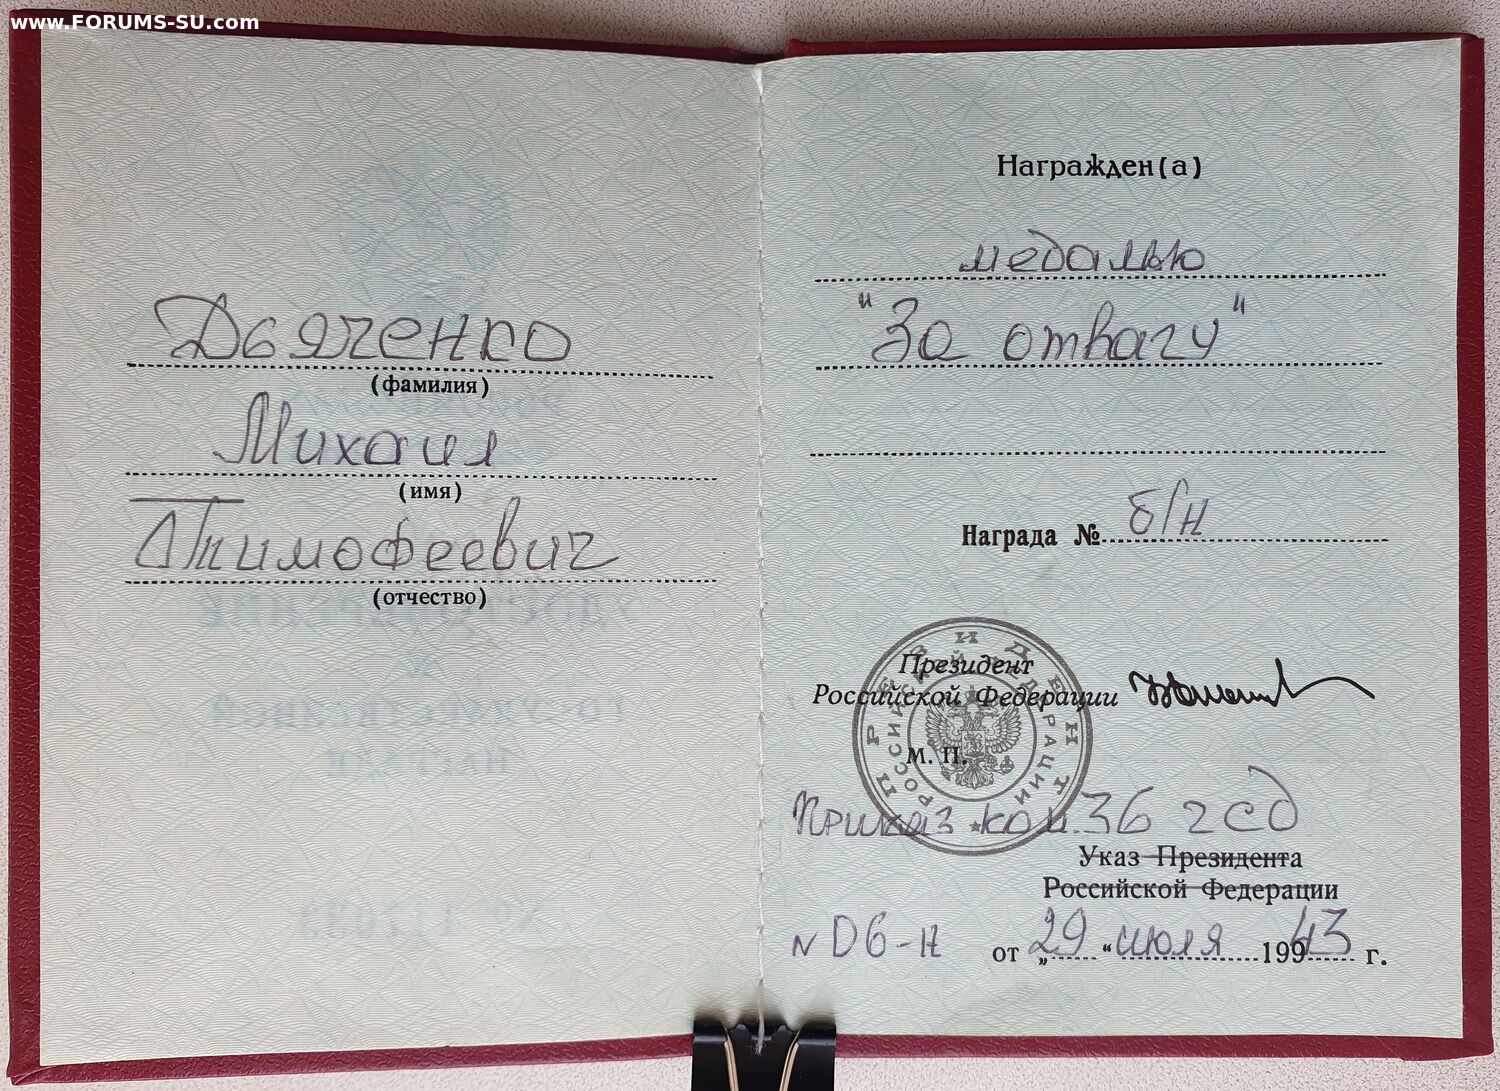 www.FORUMS-SU.com
Дьяченко
(фамилия)
Михаил
(имя)
Тимофеевич
(отчество)
Награжден(а)
медалью
"За отвагу"
Награда № б/н
Президент
Российской Федерации
М. П.
ПРЕЗИДЕНТ
РОССИЙСКОЙ ФЕДЕРАЦИИ
Приказ ком. 36 гсд
Указ Президента
Российской Федерации
N 06-н от „29“ июля 19943 г.